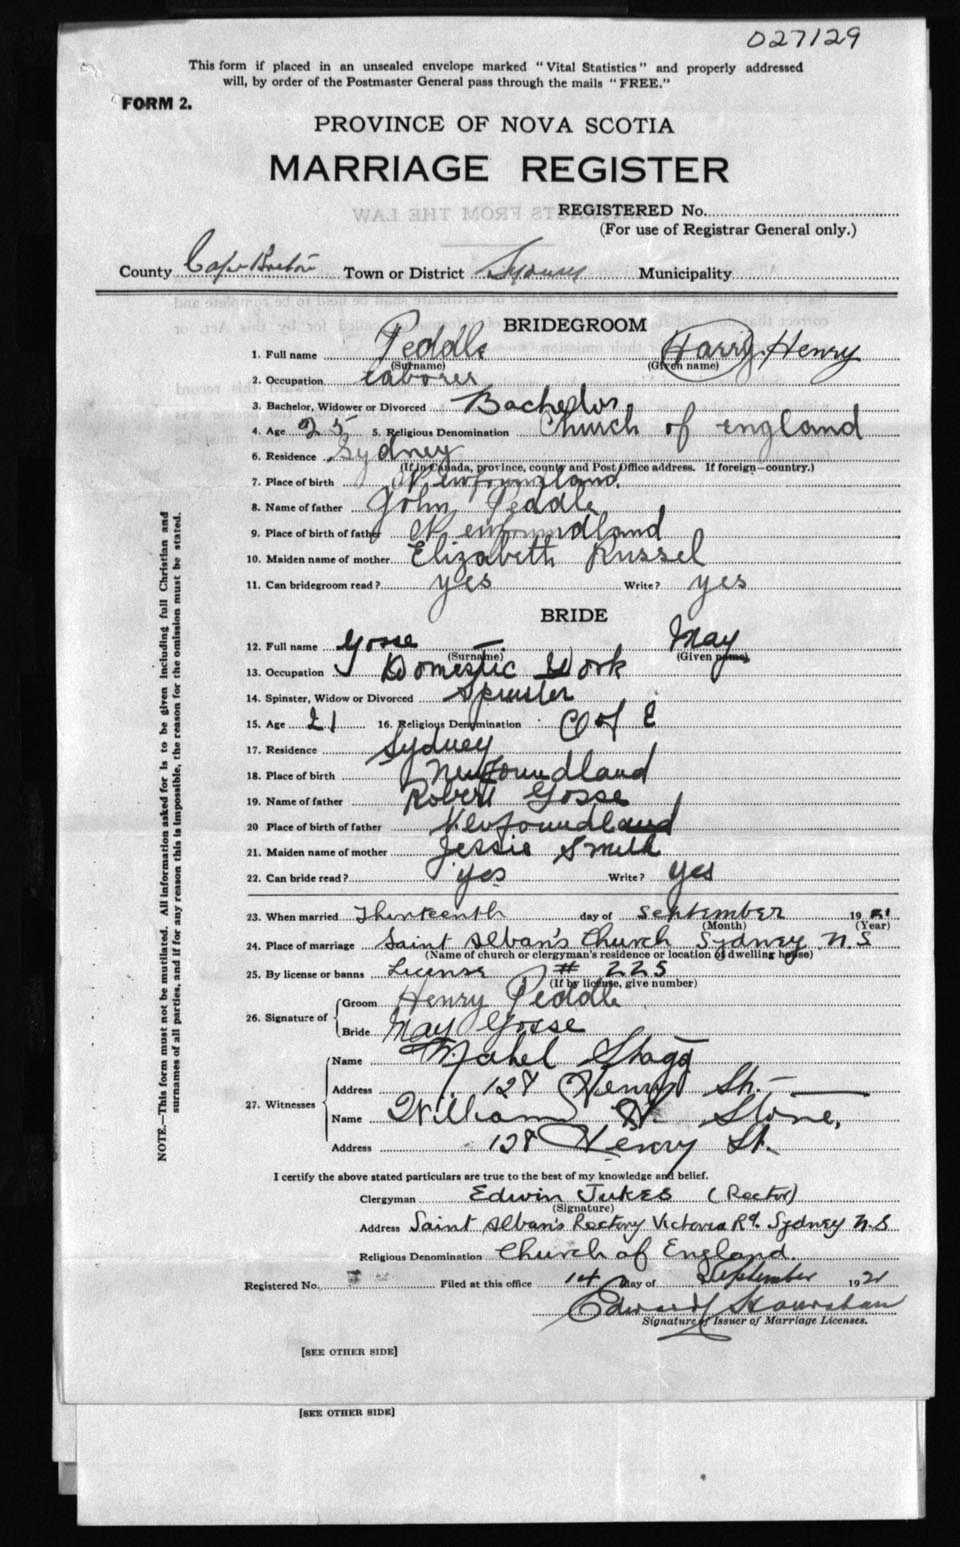 027129
This form if placed in an unsealed envelope marked "Vital Statistics" and properly addressed
will, by order of the Postmaster General pass through the mails "FREE."
FORM 2.
PROVINCE OF NOVA SCOTIA
MARRIAGE REGISTER
REGISTERED No.
(For use of Registrar General only.)
County Cape Breton Town or District Sydney Municipality
BRIDEGROOM
1. Full name Peddle Harry Henry
(Surname) (Given name)
2. Occupation Laborer
3. Bachelor, Widower or Divorced Bachelor
4. Age 25 5. Religious Denomination Church of england
6. Residence Sydney
(If in Canada, province, county and Post Office address. If foreign—country.)
7. Place of birth Newfoundland
8. Name of father John Peddle
9. Place of birth of father Newfoundland
10. Maiden name of mother Elizabeth Russel
11. Can bridegroom read? yes Write? yes
BRIDE
12. Full name Gosse May
(Surname) (Given name)
13. Occupation Domestic Work
14. Spinster, Widow or Divorced Spinster
15. Age 21 16. Religious Denomination C of E
17. Residence Sydney
18. Place of birth Newfoundland
19. Name of father Robert Gosse
20 Place of birth of father Newfoundland
21. Maiden name of mother Jessie Smith
22. Can bride read? yes Write? yes
23. When married Thirteenth day of September 1921
(Month) (Year)
24. Place of marriage Saint Alban's Church Sydney N.S
(Name of church or clergyman's residence or location of dwelling house)
25. By license or banns License # 225
(If by license, give number)
26. Signature of Groom Henry Peddle
Bride May Gosse
27. Witnesses Name Mabel Stagg
Address 128 Henry St.
Name William Stone,
Address 128 Henry St.
I certify the above stated particulars are true to the best of my knowledge and belief.
Clergyman Edwin Jukes (Rector)
(Signature)
Address Saint Alban's Rectory Victoria Rd. Sydney N.S
Religious Denomination Church of England.
Registered No. Filed at this office 14 day of September 1921
Edward
Signature of Issuer of Marriage Licenses.
[SEE OTHER SIDE]
[SEE OTHER SIDE]
NOTE.—This form must not be mutilated. All information asked for is to be given including full Christian and
surnames of all parties, and if for any reason this is impossible, the reason for the omission must be stated.